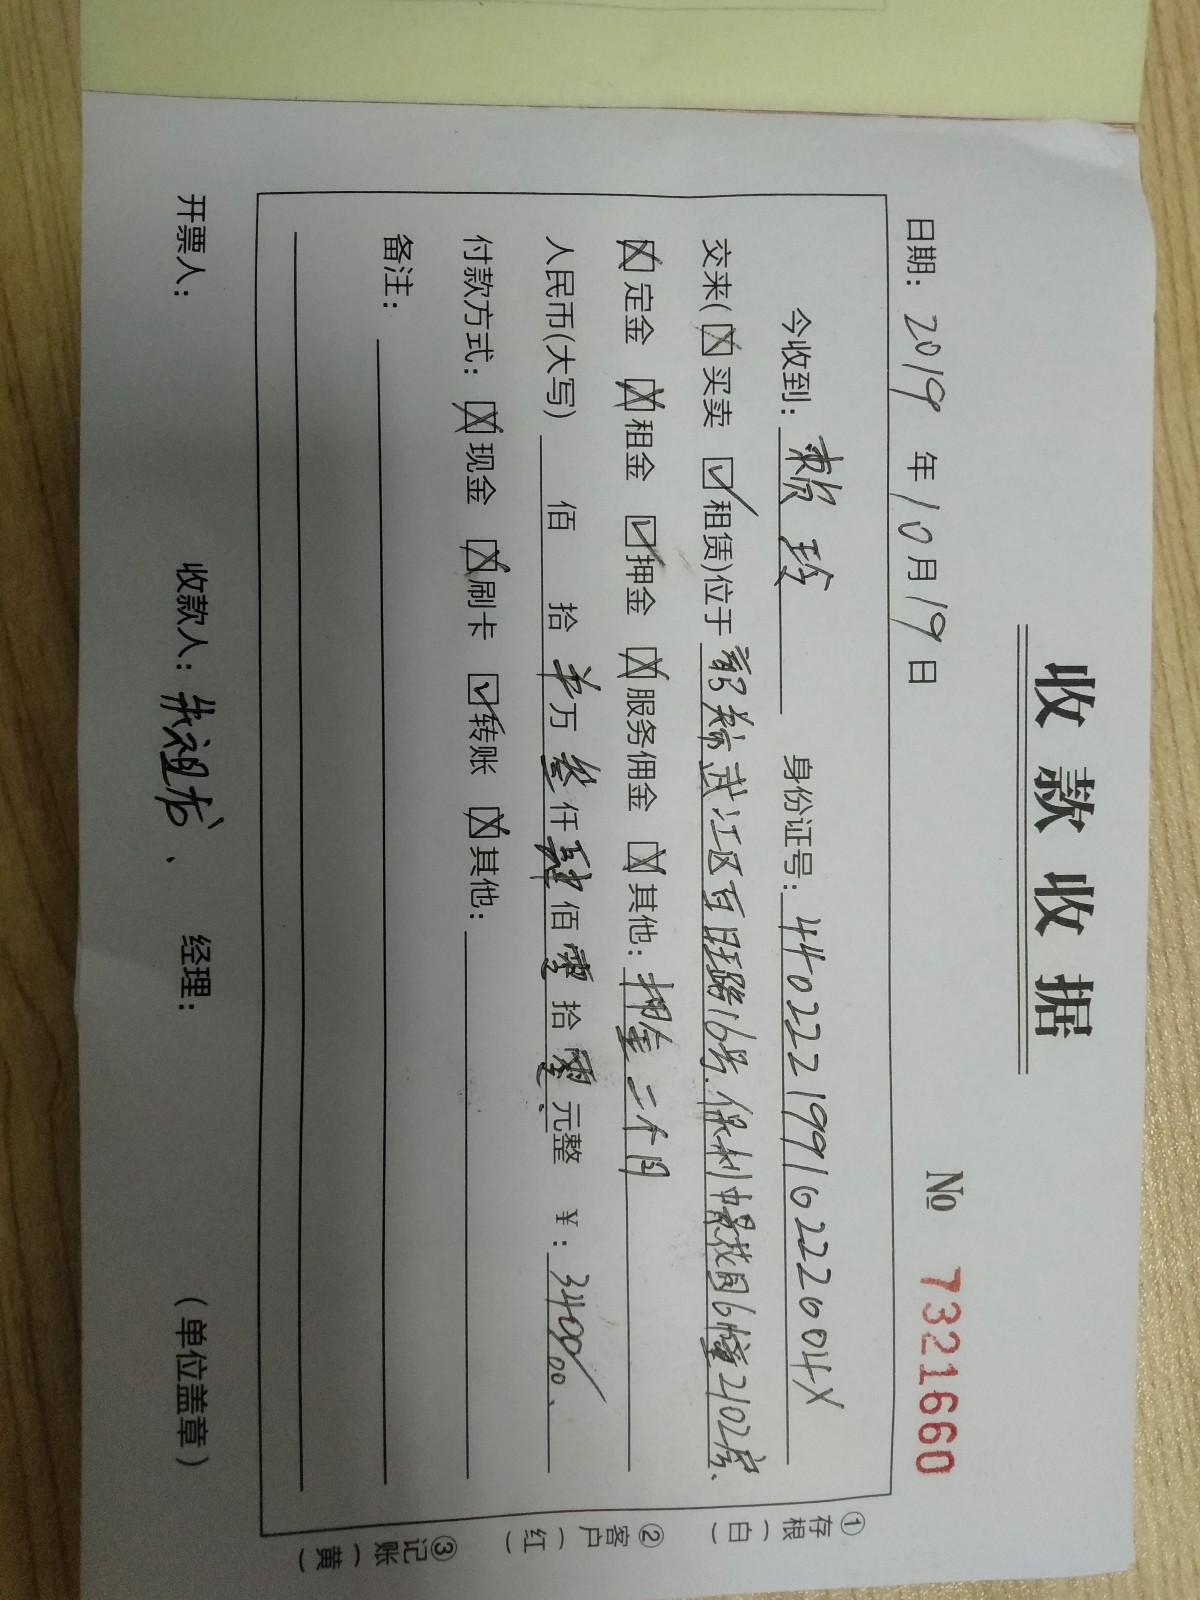 收款收据
日期: 2019 年 10 月 19 日 № 7321660
今收到: 赖玲 身份证号: 44022219910222004X
交来( 买卖 租赁)位于 韶关市武江区百旺路16号.保利中景花园6幢2102房、
定金 租金 押金 服务佣金 其他: 押金二个月
人民币(大写) 佰 拾 万 叁 仟 肆 佰 零 拾 零 元整 ¥: 3400.00、
付款方式: 现金 刷卡 转账 其他:
备注:
开票人: 收款人: 朱祖龙、 经理: (单位盖章)
①存根(白)
②客户(红)
③记账(黄)